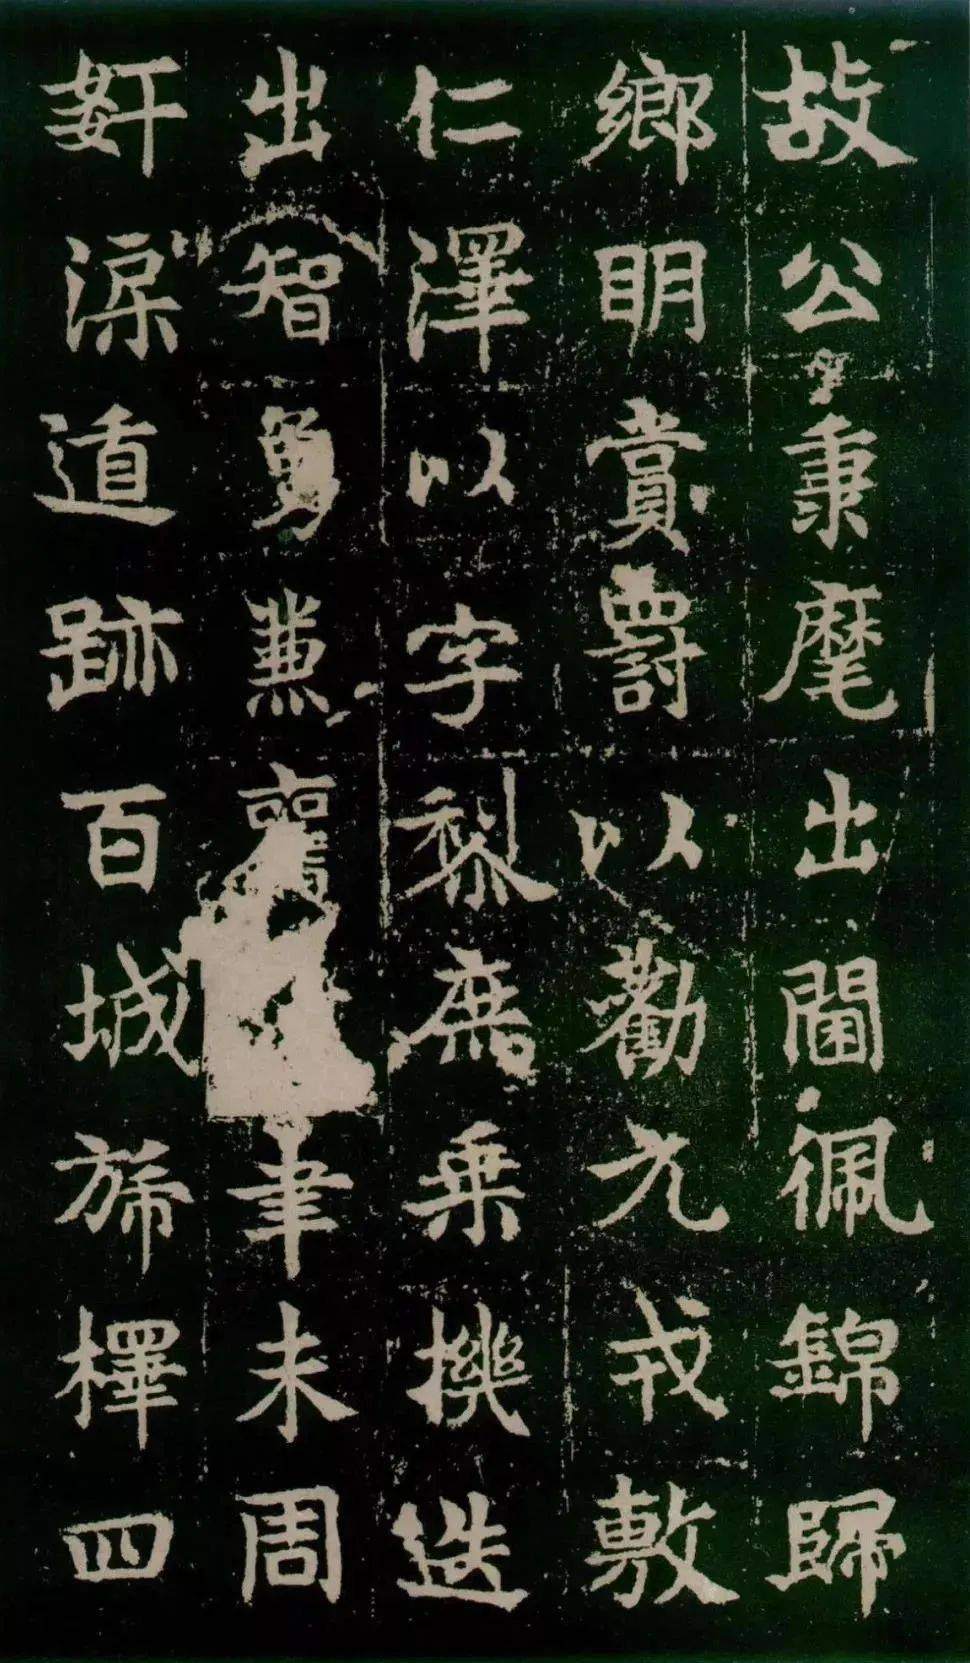 故公秉麾出閫佩錦歸
鄉明賞爵以勸元戎敷
仁澤以字黎庶乘機迭
出智勇兼聿未周
姧深遁跡百城斾擇四